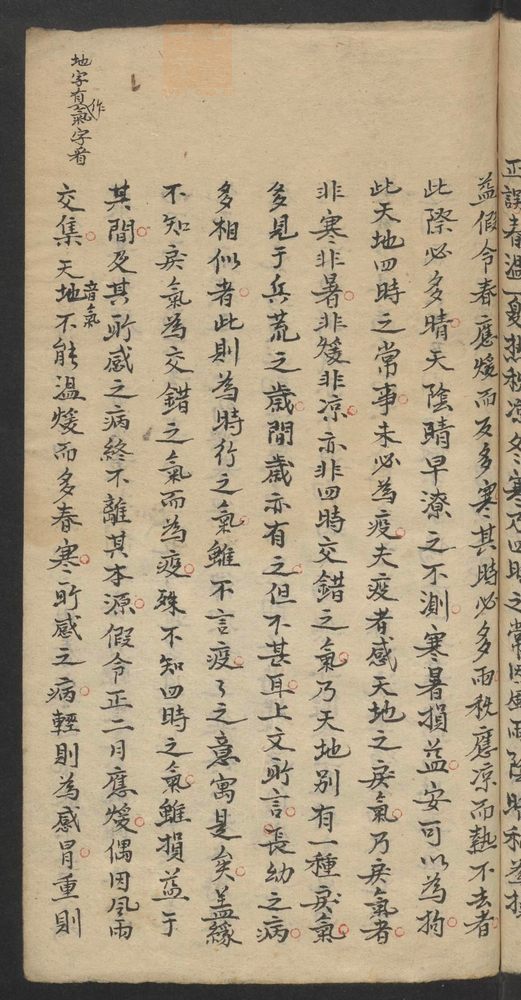 正誤春温夏熱秋凉冬寒乃四時之常因風雨陰晴稍為損
益假令春應煖而反多寒其時必多雨秋應凉而熱不去者
此際必多晴天陰晴旱潦之不測寒暑損益安可以為拘
此天地四時之常事未必為疫夫疫者感天地之戾氣乃戾氣者
非寒非暑非煖非凉亦非四時交錯之氣乃天地別有一種戾氣
多見于兵荒之歲間歲亦有之但不甚耳上文所言長幼之病
多相似者此則為時行之氣雖不言疫〻之意寓是矣盖緣
不知戾氣為交錯之氣而為疫殊不知四時之氣雖損益于
其間及其所感之病終不離其本源假令正二月應煖偶因風雨
交集天地不能温煖而多春寒所感之病輕則為感冐重則
音氣
地字有作氣字者